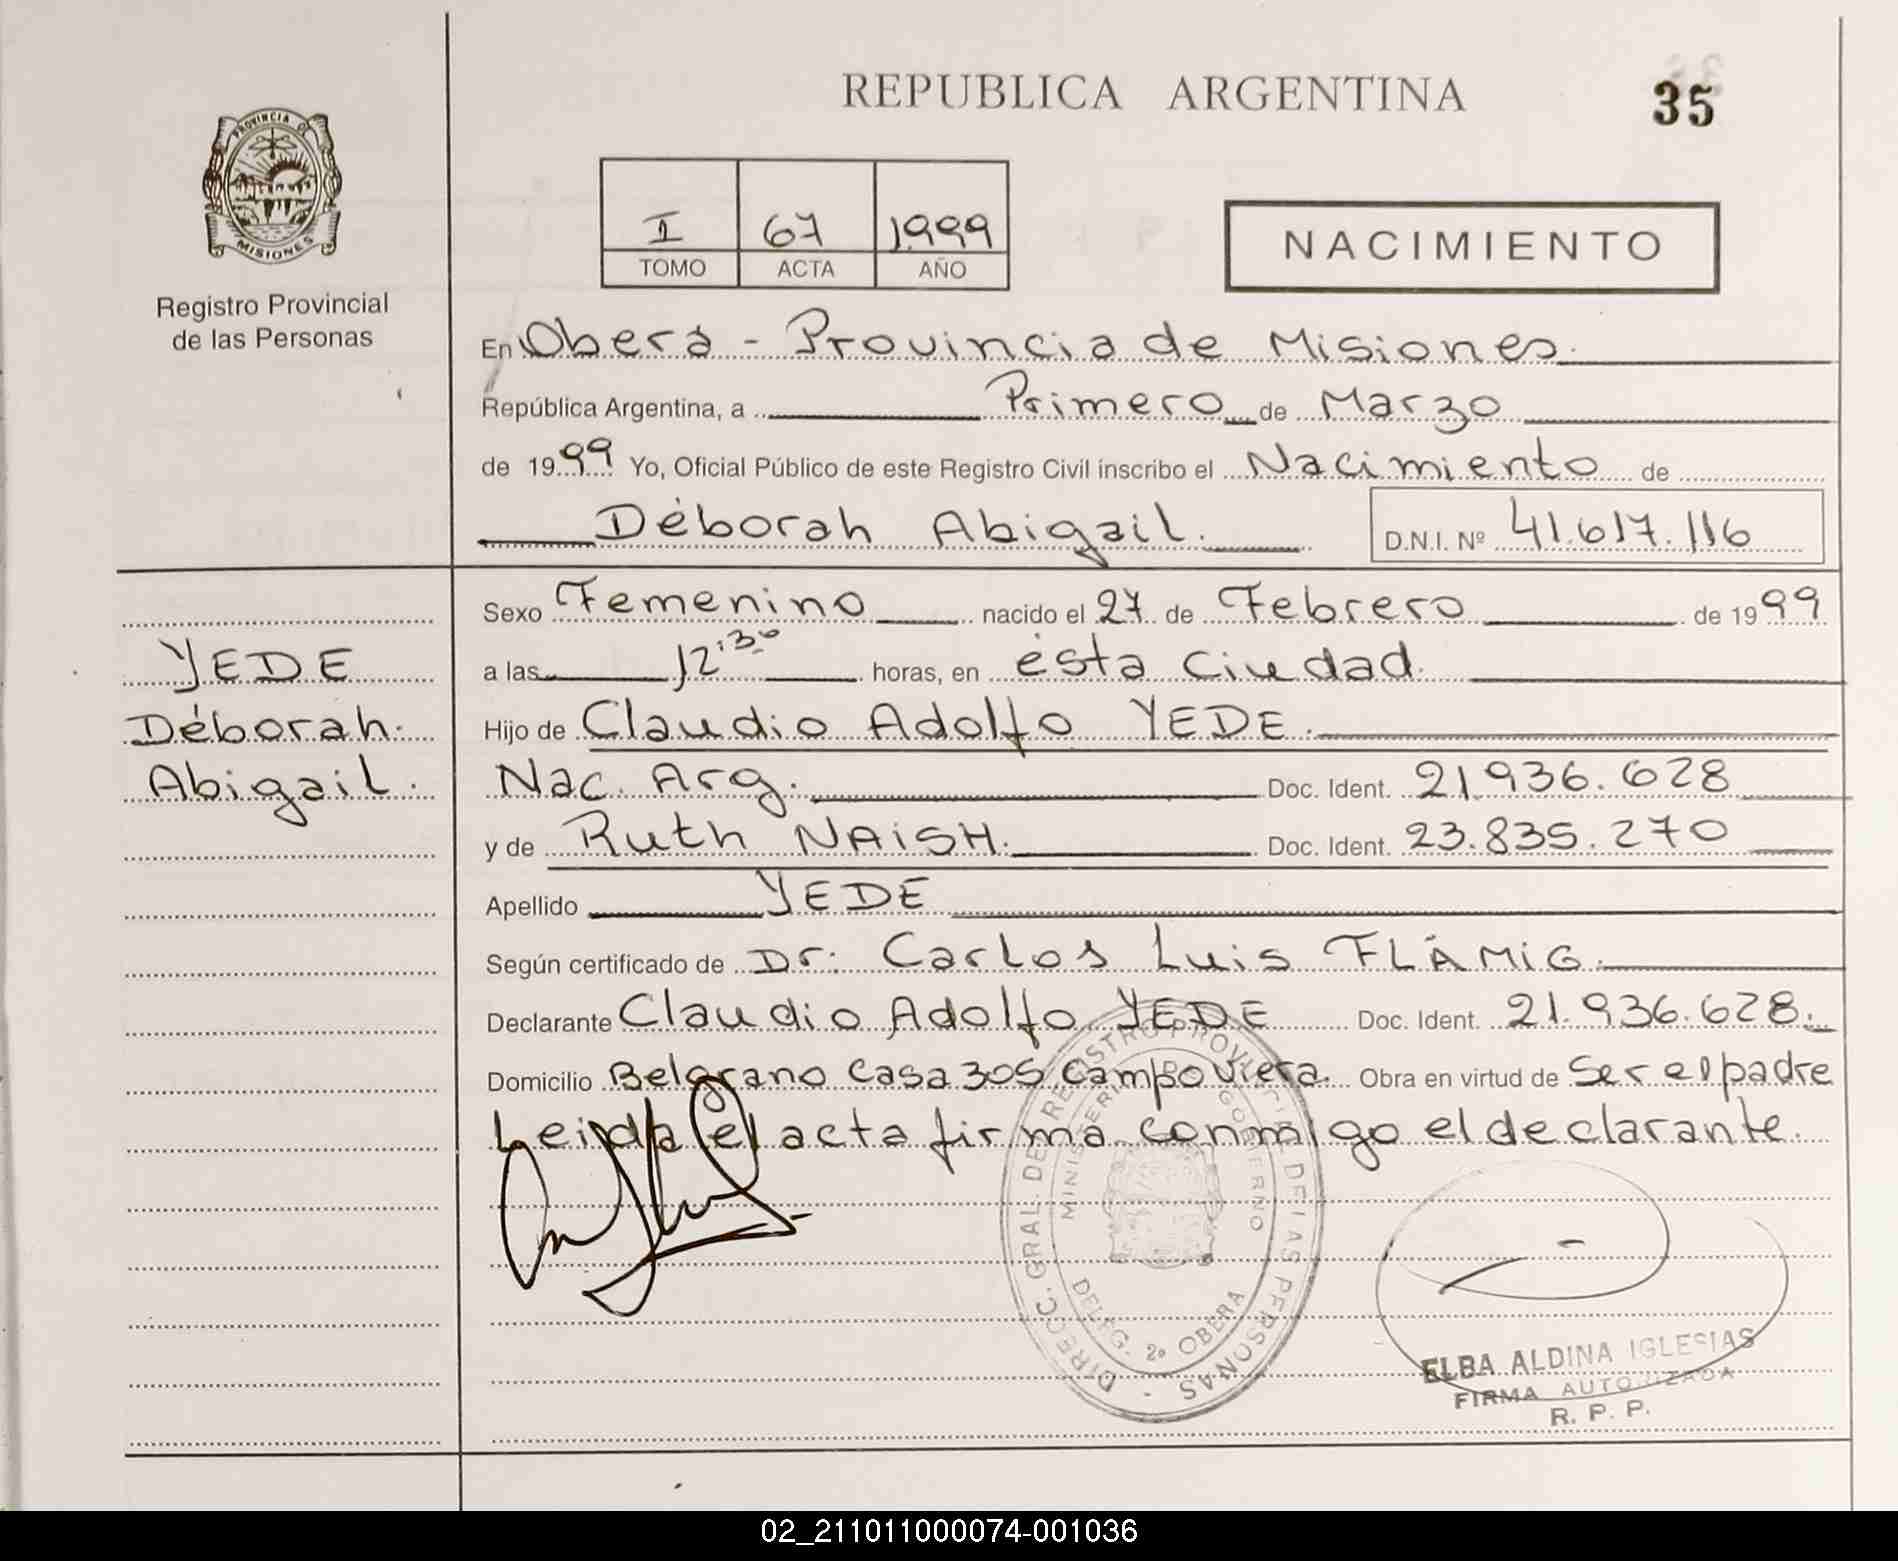 REPUBLICA ARGENTINA
35
PROVINCIA DE
MISIONES
Registro Provincial
de las Personas
I 67 1999
TOMO ACTA AÑO
NACIMIENTO
En Oberá - Provincia de Misiones.
República Argentina, a Primero de Marzo
de 1999 Yo, Oficial Público de este Registro Civil inscribo el Nacimiento de
Déborah Abigail. D.N.I. Nº 41.617.116
Sexo Femenino nacido el 27 de Febrero de 1999
a las 12:30 horas, en ésta Ciudad.
Hijo de Claudio Adolfo YEDE.
Nac. Arg. Doc. Ident. 21.936.628
y de Ruth NAISH. Doc. Ident. 23.835.270
Apellido YEDE
Según certificado de Dr: Carlos Luis FLÁMIG.
Declarante Claudio Adolfo YEDE Doc. Ident. 21.936.628.
Domicilio Belgrano Casa 305 Campo Viera. Obra en virtud de Ser el padre
Leida el acta firma conmigo el declarante.
YEDE
Déborah.
Abigail.
DIRECC. GRAL. DE REGISTRO PROVINCIAL DE LAS PERSONAS -
MINISTERIO DE GOBIERNO
DELEG. 2ª OBERA
ELBA ALDINA IGLESIAS
FIRMA AUTORIZADA
R. P. P.
02_211011000074-001036